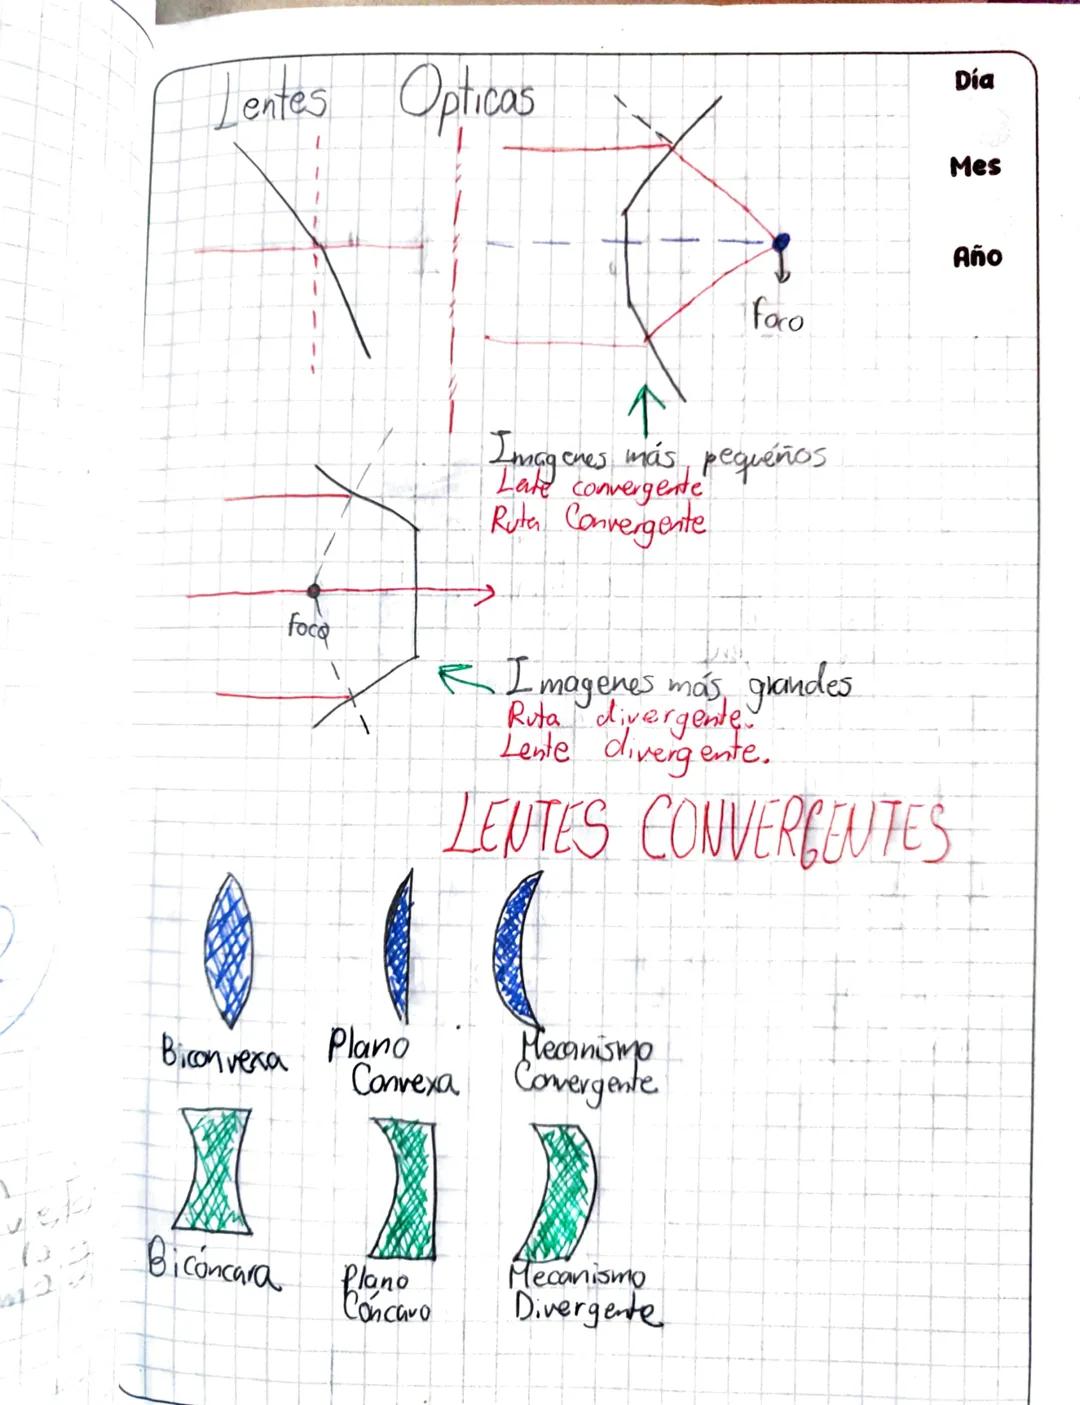 Lentes Opticas
Día
Mes
Año
foco
Imagenes más pequeños
Lete convergente
Ruta Convergente
foco
Imagenes más grandes
Ruta divergente.
Lente divergente.
LENTES CONVERGENTES
Biconvexa
Plano
Convexa
Mecanismo
Convergente
Bicóncava
Plano
Cóncavo
Mecanismo
Divergente